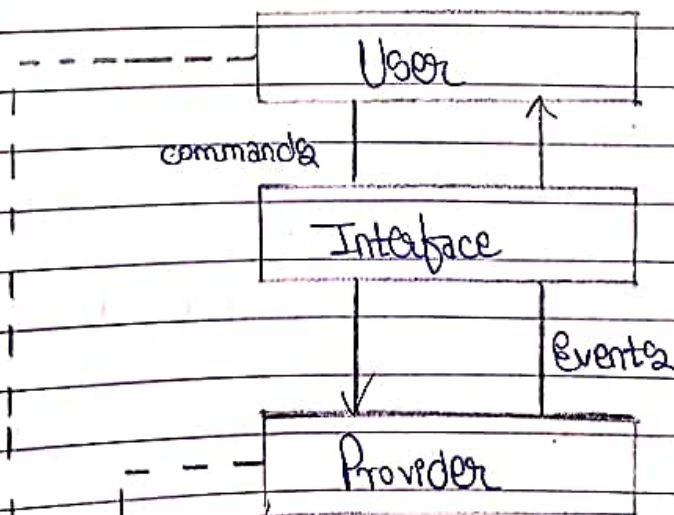 User
commands
Interface
Events
Provider